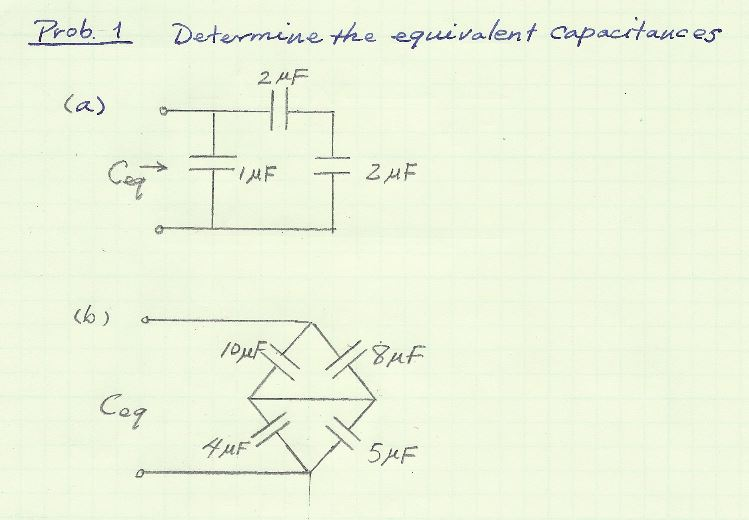 Prob. 1 Determine the equivalent capacitances
2 µF
(a)
Ceq → 1 µF 2 µF
(b)
10 µF 8 µF
Ceq
4 µF 5 µF